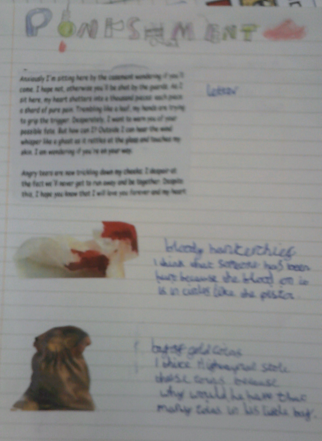 PUNISHMENT
Anxiously I'm sitting here by the casement wondering if you'll
come. I hope not, otherwise you'll be shot by the guards. As I
sit here, my heart shatters into a thousand pieces: each piece
a shard of pure pain. Trembling like a leaf, my hands are trying
to grip the trigger. Desperately, I want to warn you of your
possible fate. But how can I? Outside I can hear the wind
whisper like a ghost as it rattles at the glass and touches my
skin. I am wondering if you're on your way.
Angry tears are now trickling down my cheeks; I despair at
the fact we'll never get to run away and be together. Despite
this, I hope you know that I will love you forever and my heart
Letter
bloody hankerchief
I think that someone has been
hurt because the blood on it
is in circles like the
bag of gold coins
I think highwayman stole
these coins because
why would he have that
many coins in his little bag.